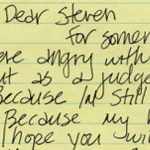 Dear Steven
For somer
ere angry with
ut as a judge
Because I'm still
Because my h
hope you wil